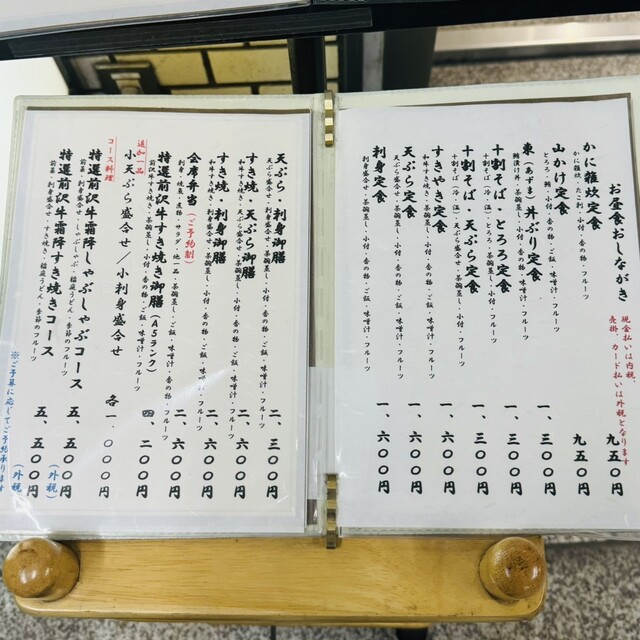 お昼食おしながき
現金払いは内税
売掛、カード払いは外税となります
かに雑炊定食 九五〇円
かに雑炊・たこ刺・小付・香の物・フルーツ
山かけ定食 九五〇円
とろろ・鮪・小付・香の物・ご飯・味噌汁・フルーツ
東（あずま）丼ぶり定食 一、三〇〇円
鮪漬け丼・茶碗蒸し・小付・香の物・味噌汁・フルーツ
十割そば・とろろ定食 一、三〇〇円
十割そば（冷・温）とろろ・茶碗蒸し・小付・香の物・ご飯・フルーツ
十割そば・天ぷら定食 一、三〇〇円
十割そば（冷・温）天ぷら盛合せ・小付・香の物・ご飯・フルーツ
すきやき定食 一、六〇〇円
和牛すき焼き・茶碗蒸し・小付・香の物・ご飯・味噌汁・フルーツ
天ぷら定食 一、六〇〇円
天ぷら盛合せ・茶碗蒸し・小付・香の物・ご飯・味噌汁・フルーツ
刺身定食 一、六〇〇円
刺身盛合せ・茶碗蒸し・小付・香の物・ご飯・味噌汁・フルーツ
天ぷら・刺身御膳 二、三〇〇円
天ぷら盛合せ・刺身盛合せ・茶碗蒸し・小付・香の物・ご飯・味噌汁・フルーツ
すき焼・天ぷら御膳 二、六〇〇円
和牛すき焼き・天ぷら盛合せ・茶碗蒸し・小付・香の物・ご飯・味噌汁・フルーツ
すき焼・刺身御膳 二、六〇〇円
和牛すき焼き・刺身盛合せ・茶碗蒸し・小付・香の物・ご飯・味噌汁・フルーツ
会席弁当（ご予約制） 二、六〇〇円
刺身・焼魚・煮物・サラダ・他一品・茶碗蒸し・ご飯・味噌汁・フルーツ
特選前沢牛すき焼き御膳（A5ランク） 四、二〇〇円
和牛すき焼き・刺身盛合せ・茶碗蒸し・小付・香の物・ご飯・味噌汁・フルーツ
追加一品
小天ぷら盛合せ／小刺身盛合せ 各一、〇〇〇円
コース料理
特選前沢牛霜降しゃぶしゃぶコース 五、五〇〇円（外税）
前菜・刺身盛合せ・しゃぶしゃぶ・稲庭うどん・季節のフルーツ
特選前沢牛霜降すき焼きコース 五、五〇〇円（外税）
前菜・刺身盛合せ・すき焼き・稲庭うどん・季節のフルーツ
※ご予算に応じてご予約承ります